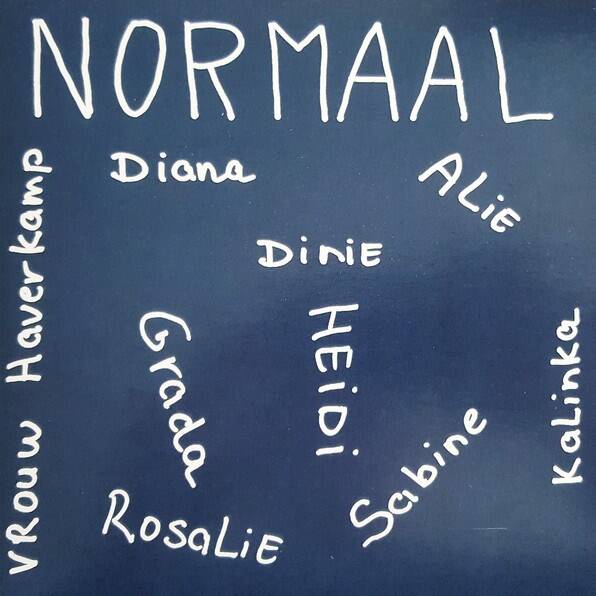 NORMAAL
Diana
ALiE
DiniE
VROUW Haverkamp
Grada
HEiDi
KaLinka
Sabine
RosaLiE